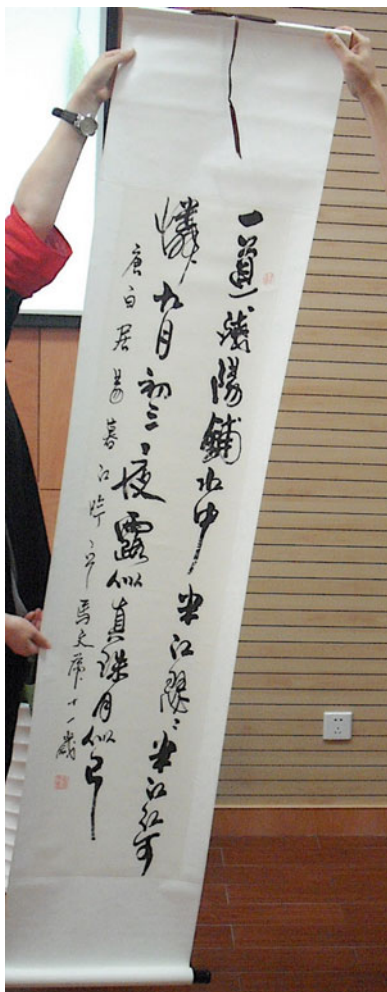 一道残陽鋪水中半江瑟〻半江红可
憐九月初三夜露似真珠月似弓
唐白居易暮江吟 馬文 十一歲